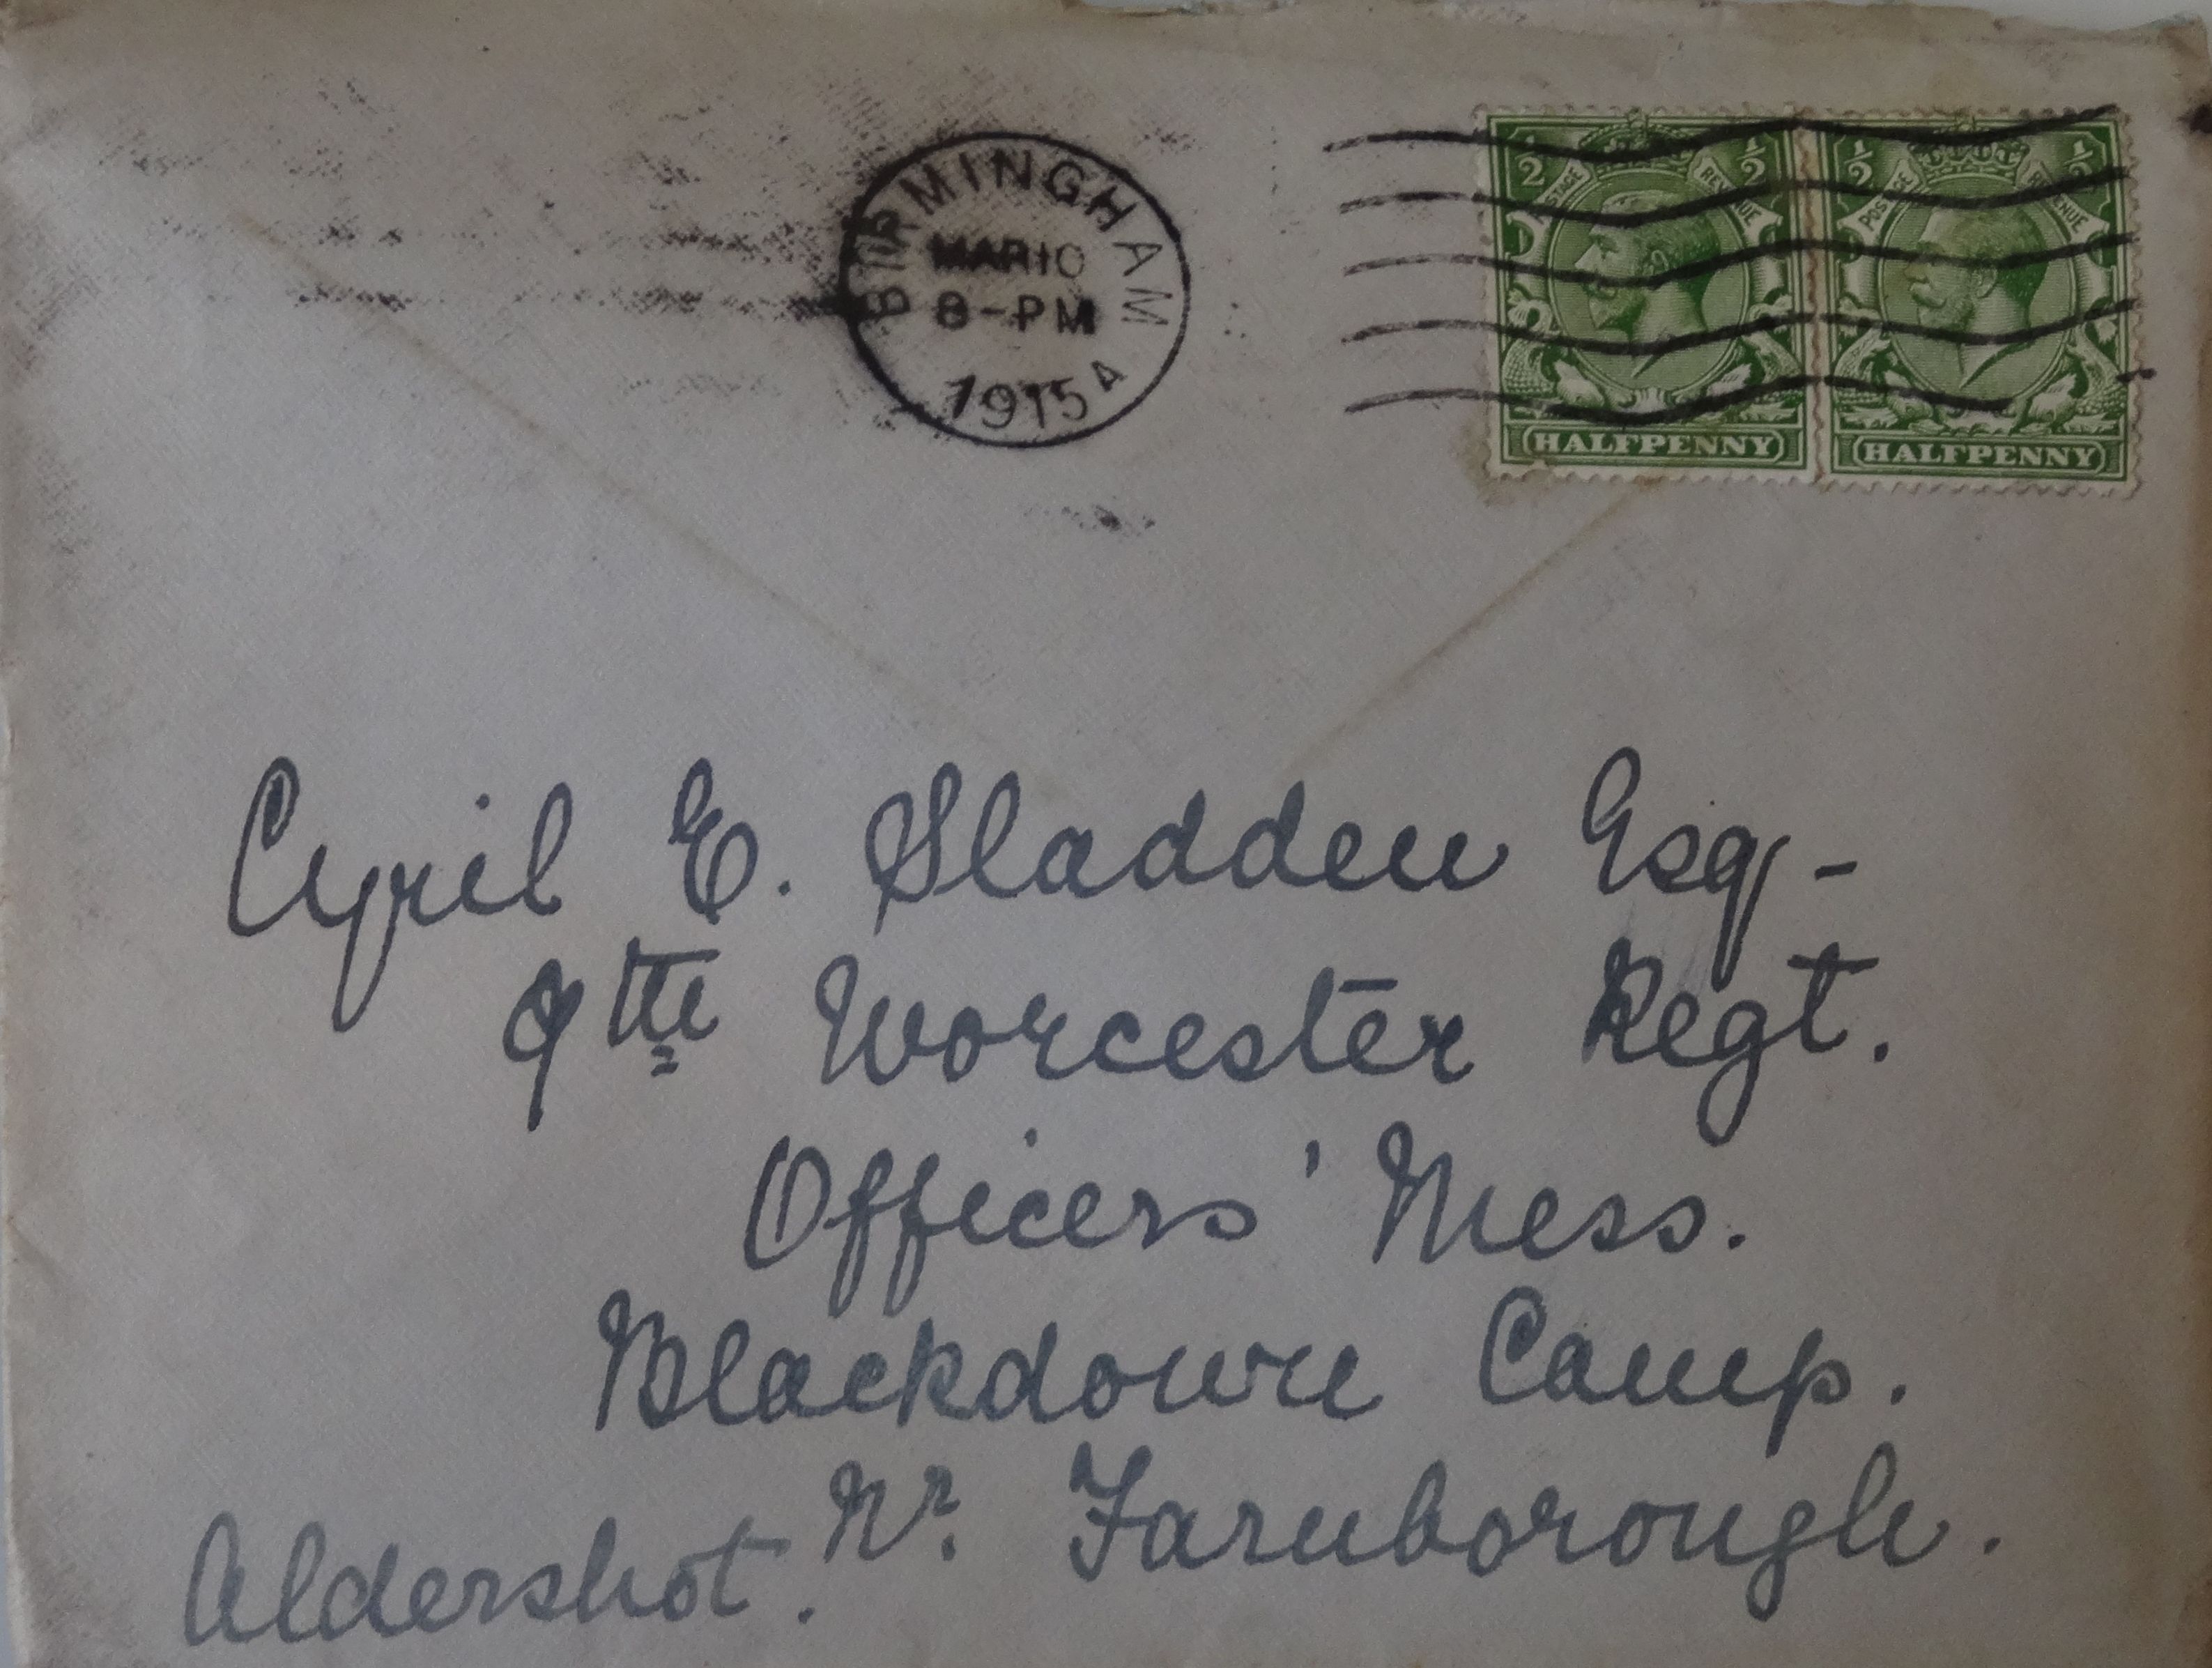 BIRMINGHAM
MAR 10
8-PM
1915 A
½ POSTAGE REVENUE ½
HALFPENNY
½ POSTAGE REVENUE ½
HALFPENNY
Cyril E. Sladden Esq-
9th Worcester Regt.
Officers' Mess.
Blackdown Camp.
Nr. Farnborough.
Aldershot.